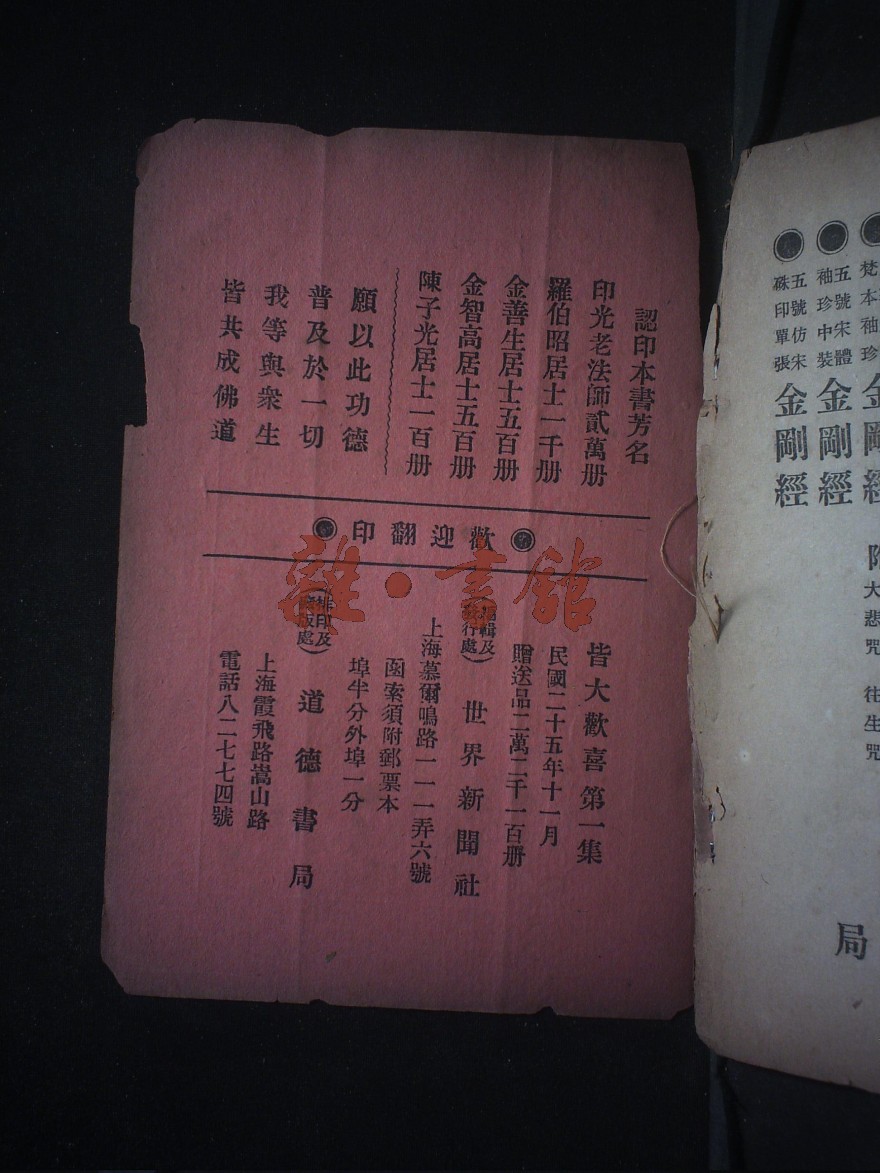 認印本書芳名
印光老法師貳萬册
羅伯昭居士一千册
金善生居士五百册
金智高居士五百册
陳子光居士一百册
願以此功德
普及於一切
我等與衆生
皆共成佛道
歡迎翻印
皆大歡喜第一集
民國二十五年十一月
贈送品二萬二千一百册
編輯及發行處
世界新聞社
上海慕爾鳴路一一一弄六號
函索須附郵票本
埠半分外埠一分
排印及
道德書局
上海霞飛路嵩山路
電話八二七七四號
雜·書館
梵本袖珍
五號宋體
袖珍中裝
金剛經
五號仿宋
硃印單張
金剛經
大悲咒
往生咒
局